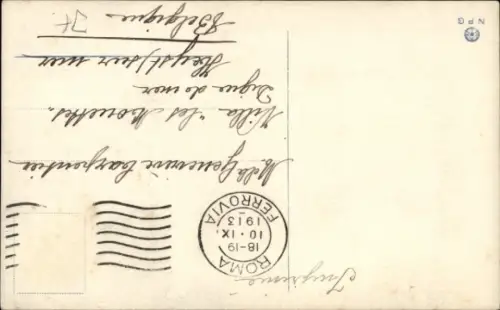 Imprimé
ROMA
FERROVIA
18-19
10·IX.
1913
Melle Geneviève Carpentier
Villa "Les Mouettes"
Digue de mer
Heyst s/ sur mer
Belgique
NPG